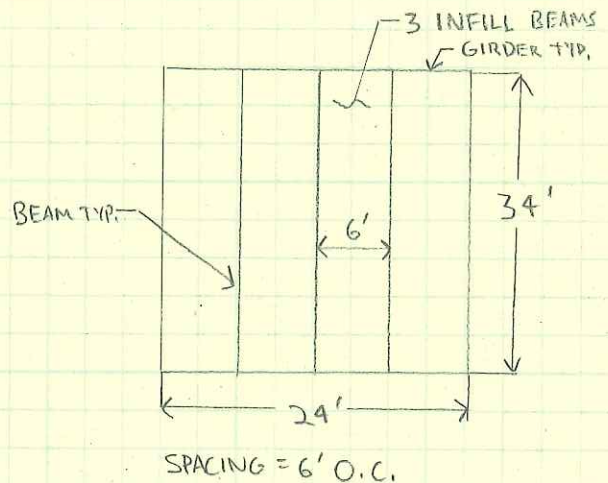 3 INFILL BEAMS
GIRDER TYP.
BEAM TYP.
6'
34'
24'
SPACING = 6' O.C.